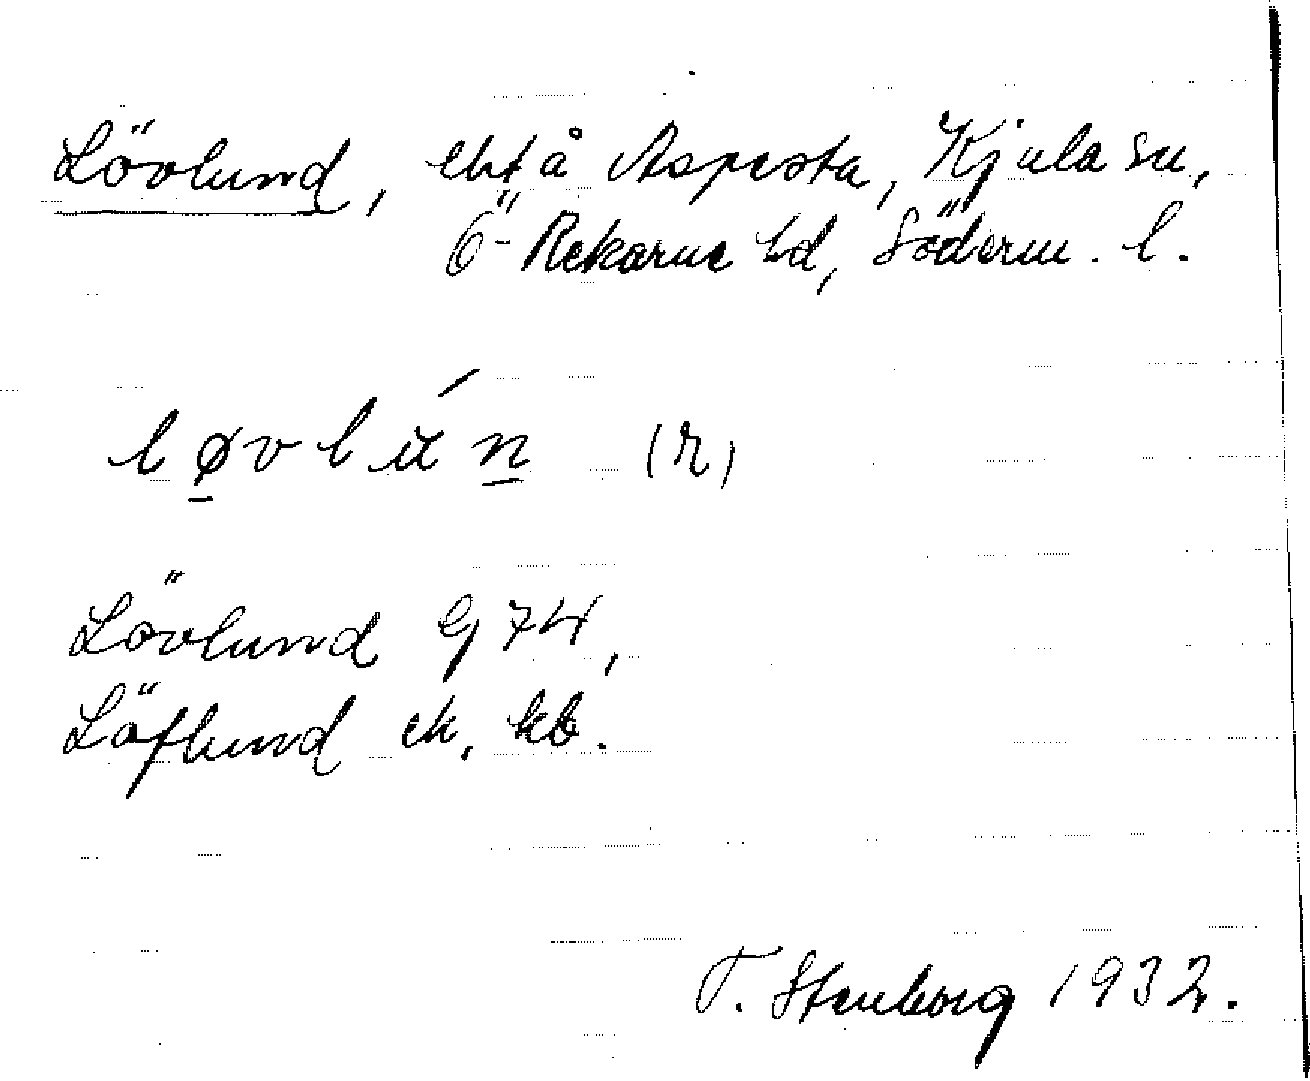 Lövlund, ekt å Aspesta, Kjula sn,
Ö- Rekarne hd, Söderm. l.
løvlún (r)
Lövlund G 74,
Löflund ek, kb.
T. Stenborg 1932.